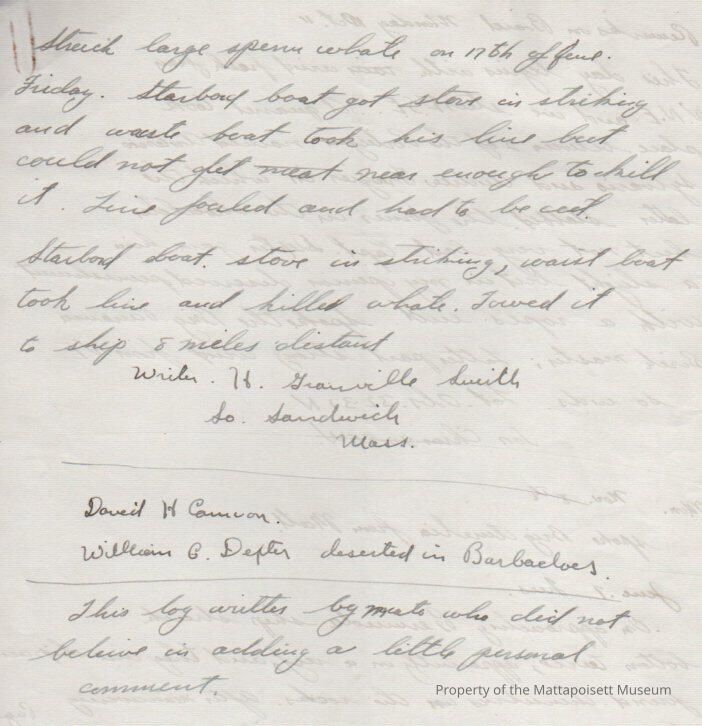 Struck large sperm whale on 17th of June.
Friday. Starbord boat got stove in striking
and waste boat took his line but
could not get meat near enough to kill
it. Line fouled and had to be cut.
Starbord boat. stove in striking, waist boat
took line and killed whale. Towed it
to ship 8 miles distant
Writer. H. Granville Smith
So. Sandwich
Mass.
David H Cannon.
William C. Dexter deserted in Barbadoes.
This log written by mate who did not
believe in adding a little personal
comment.
Property of the Mattapoisett Museum